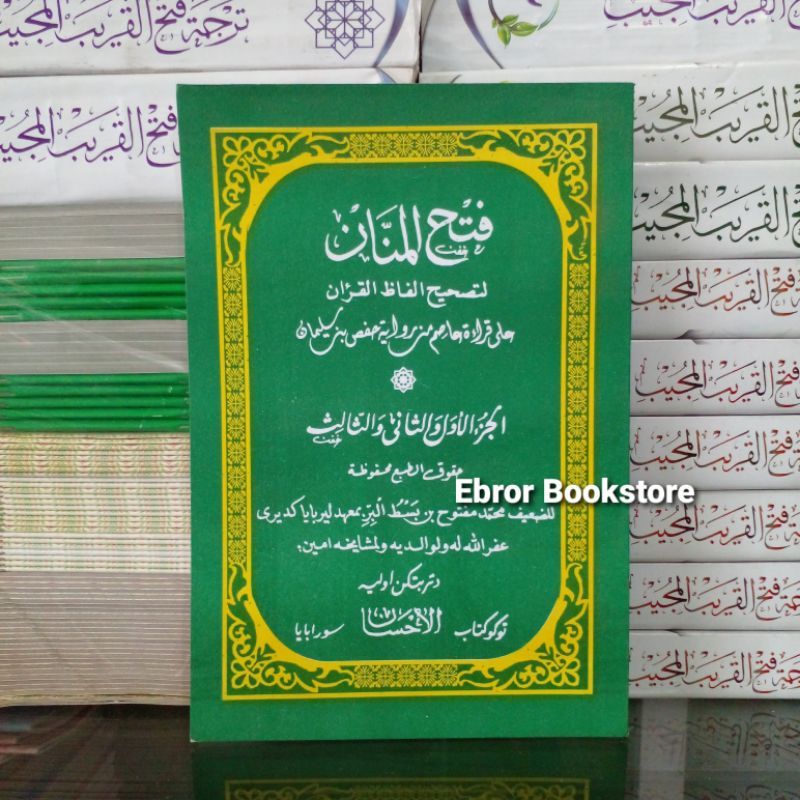 فتح المنان
لتصحيح الفاظ القرءان
على قراءة عاصم من رواية حفص بن سليمان
الجزء الأول والثاني والثالث
حقوق الطبع محفوظة
للضعيف محمد مفتوح بن بَسْطُ الْبِرِّ بمعهد ليربايا كديرى
غفر الله له ولوالديه ولمشايخه امين
دتربتكن اوليه
توكو كتاب الإحسان سورابايا
Ebror Bookstore
ترجمة فتح القريب المجيب
فتح القريب المجيب
فتح القريب المجيب
فتح القريب المجيب
فتح القريب المجيب
فتح القريب المجيب
فتح القريب المجيب
فتح القريب المجيب
ترجمة فتح القريب المجيب
ترجمة فتح القريب المجيب